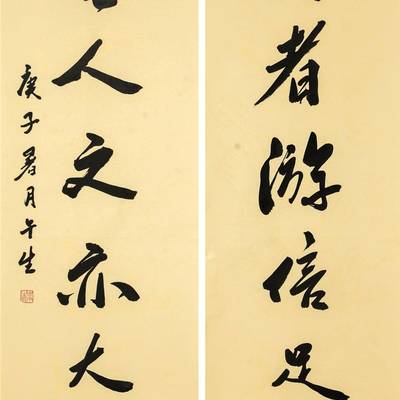 者游信足
人文亦大
庚子暑月午生